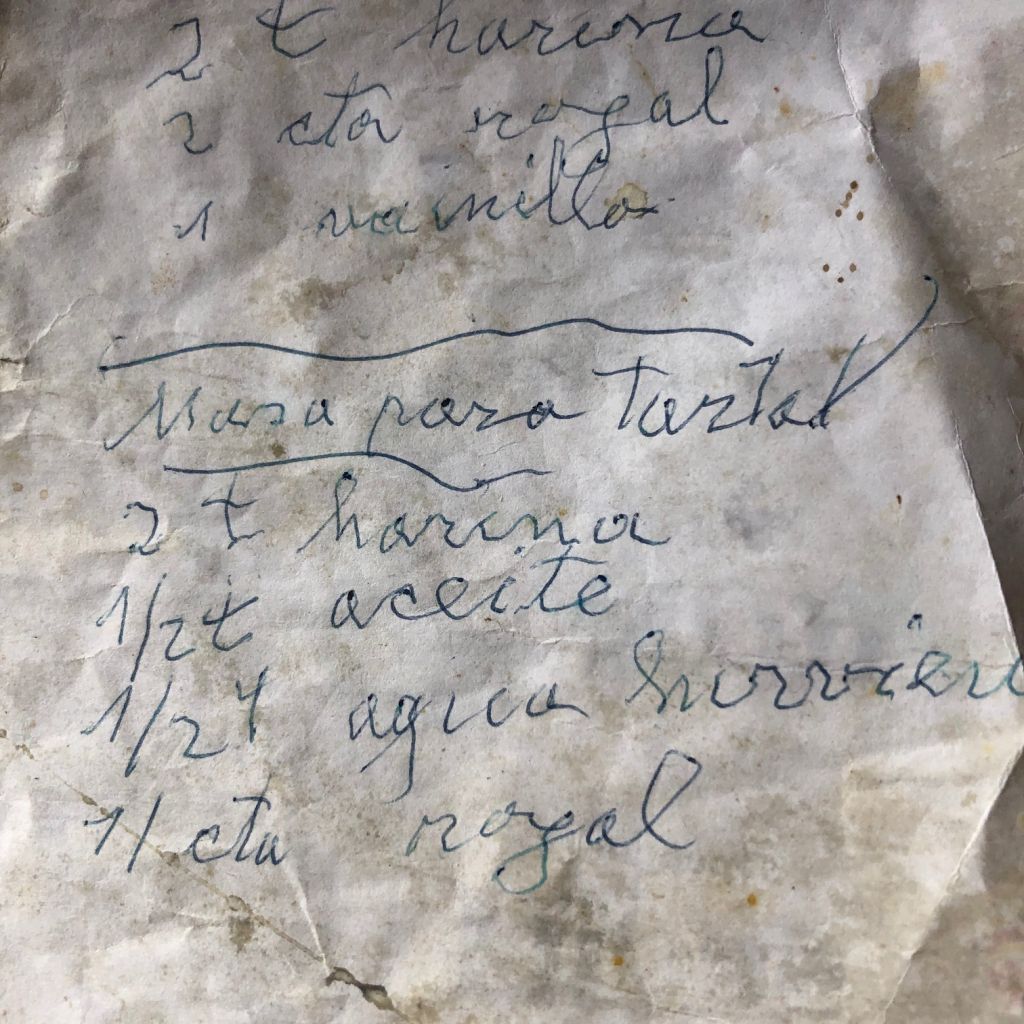 2 t harina
2 cta royal
1 vainilla
Masa para Tarta
2 t harina
1/2 t aceite
1/2 t agua hirvien
1/ cta royal